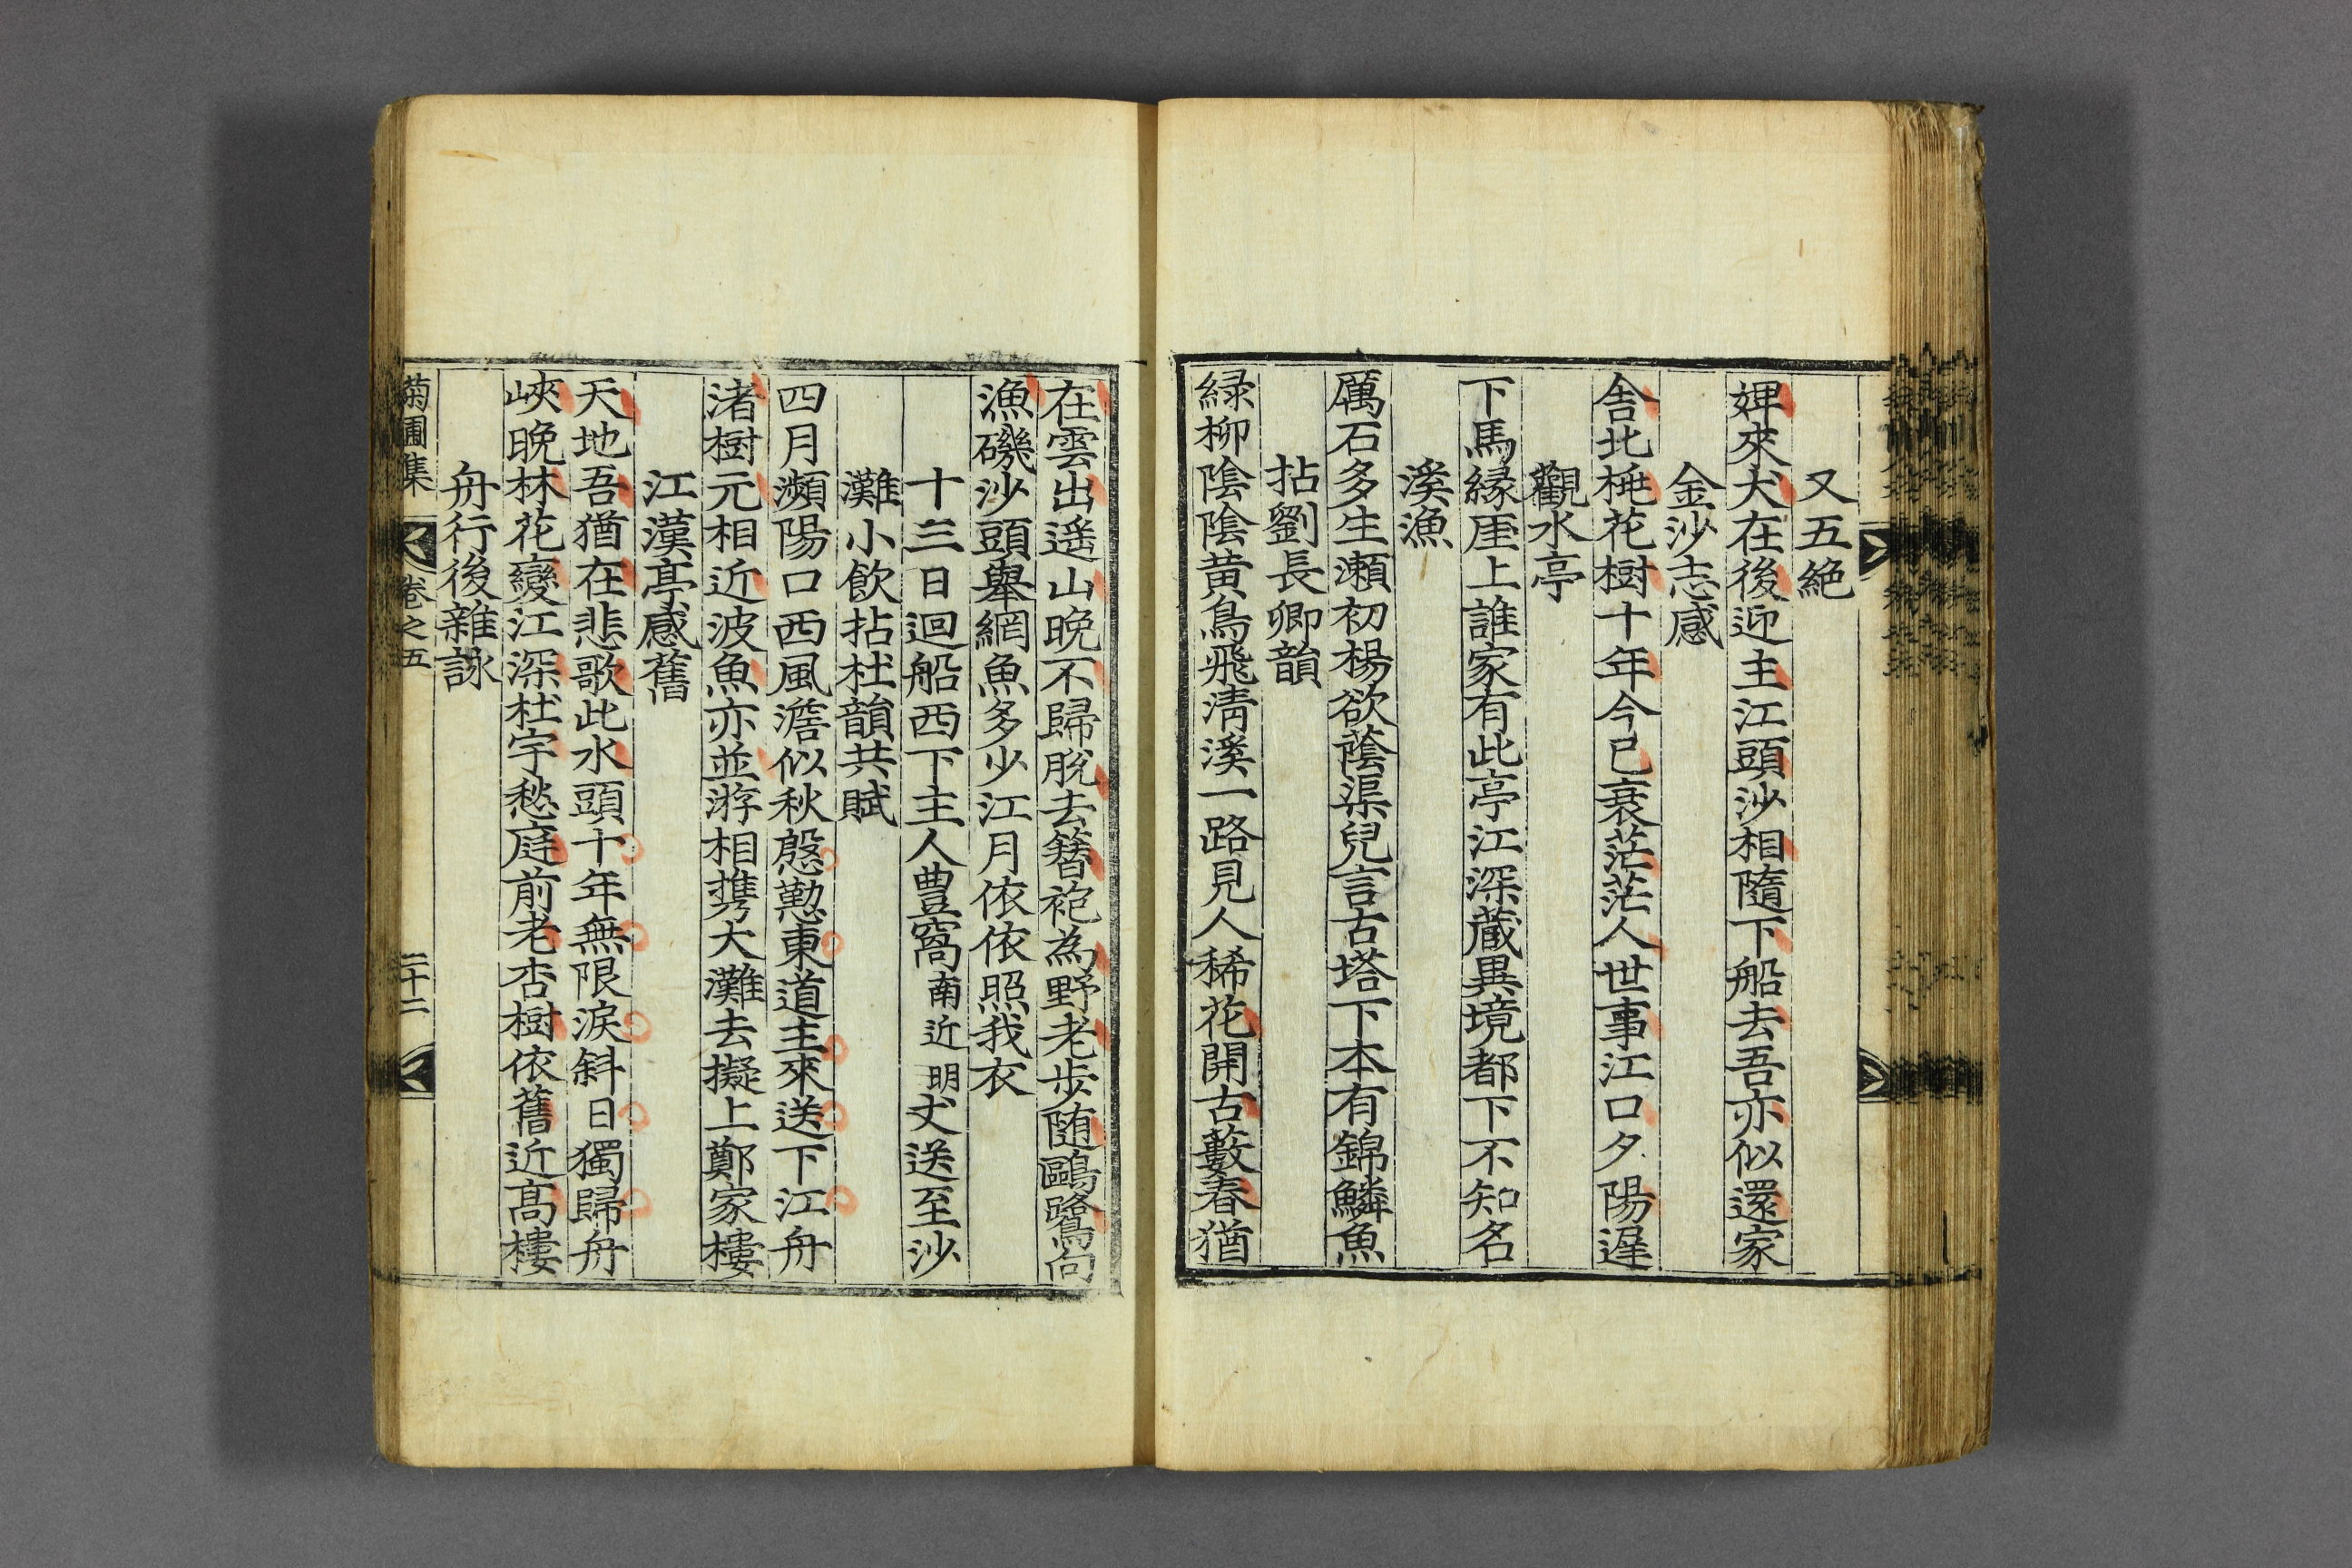 又五絶
婢來犬在後迎主江頭沙相隨下船去吾亦似還家
金沙志感
舎北桃花樹十年今已衰茫茫人世事江口夕陽遲
觀水亭
下馬緣厓上誰家有此亭江深藏異境都下不知名
溪漁
厲石多生瀨初楊欲蔭渠兒言古塔下本有錦鱗魚
拈劉長卿韻
綠柳陰陰黃鳥飛淸溪一路見人稀花開古藪春猶
在雲出遥山晩不歸脫去簪袍為野老步随鷗鷺向
漁磯沙頭舉網魚多少江月依依照我衣
十三日迴船西下主人豊窩南近明丈送至沙
灘小飲拈杜韻共賦
四月瀕陽口西風澹似秋慇懃東道主來送下江舟
渚樹元相近波魚亦並游相携大灘去擬上鄭家樓
江漢亭感舊
天地吾猶在悲歌此水頭十年無限淚斜日獨歸舟
峽晩林花變江深杜宇愁庭前老杏樹依舊近高樓
舟行後雜詠
菊圃集 卷之五 二十二